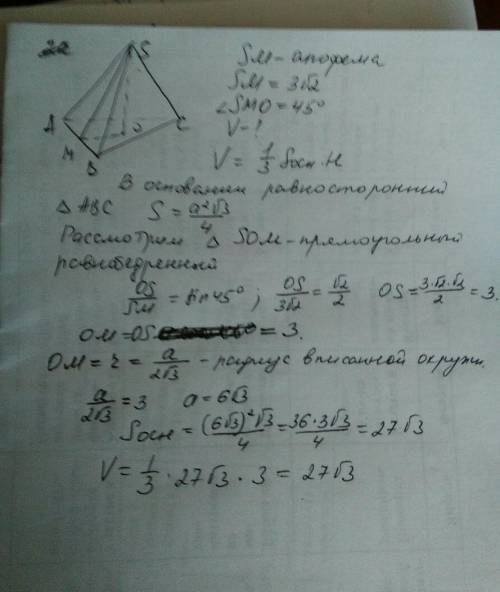 S
A
O
C
M
B
SM - апофема
SM = 3√2
∠SMO = 45°
V - ?
V = 1/3 Sосн · H
В основании равносторонний
△ ABC S = a²√3/4
Рассмотрим △ SOM - прямоугольный
равнобедренный
OS/SM = sin 45° ; OS/3√2 = √2/2 OS = 3·√2·√2/2 = 3.
OM = OS = 3.
OM = r = a/2√3 - радиус вписанной окружн.
a/2√3 = 3 a = 6√3
Sосн = (6√3)²√3/4 = 36·3√3/4 = 27√3
V = 1/3 · 27√3 · 3 = 27√3